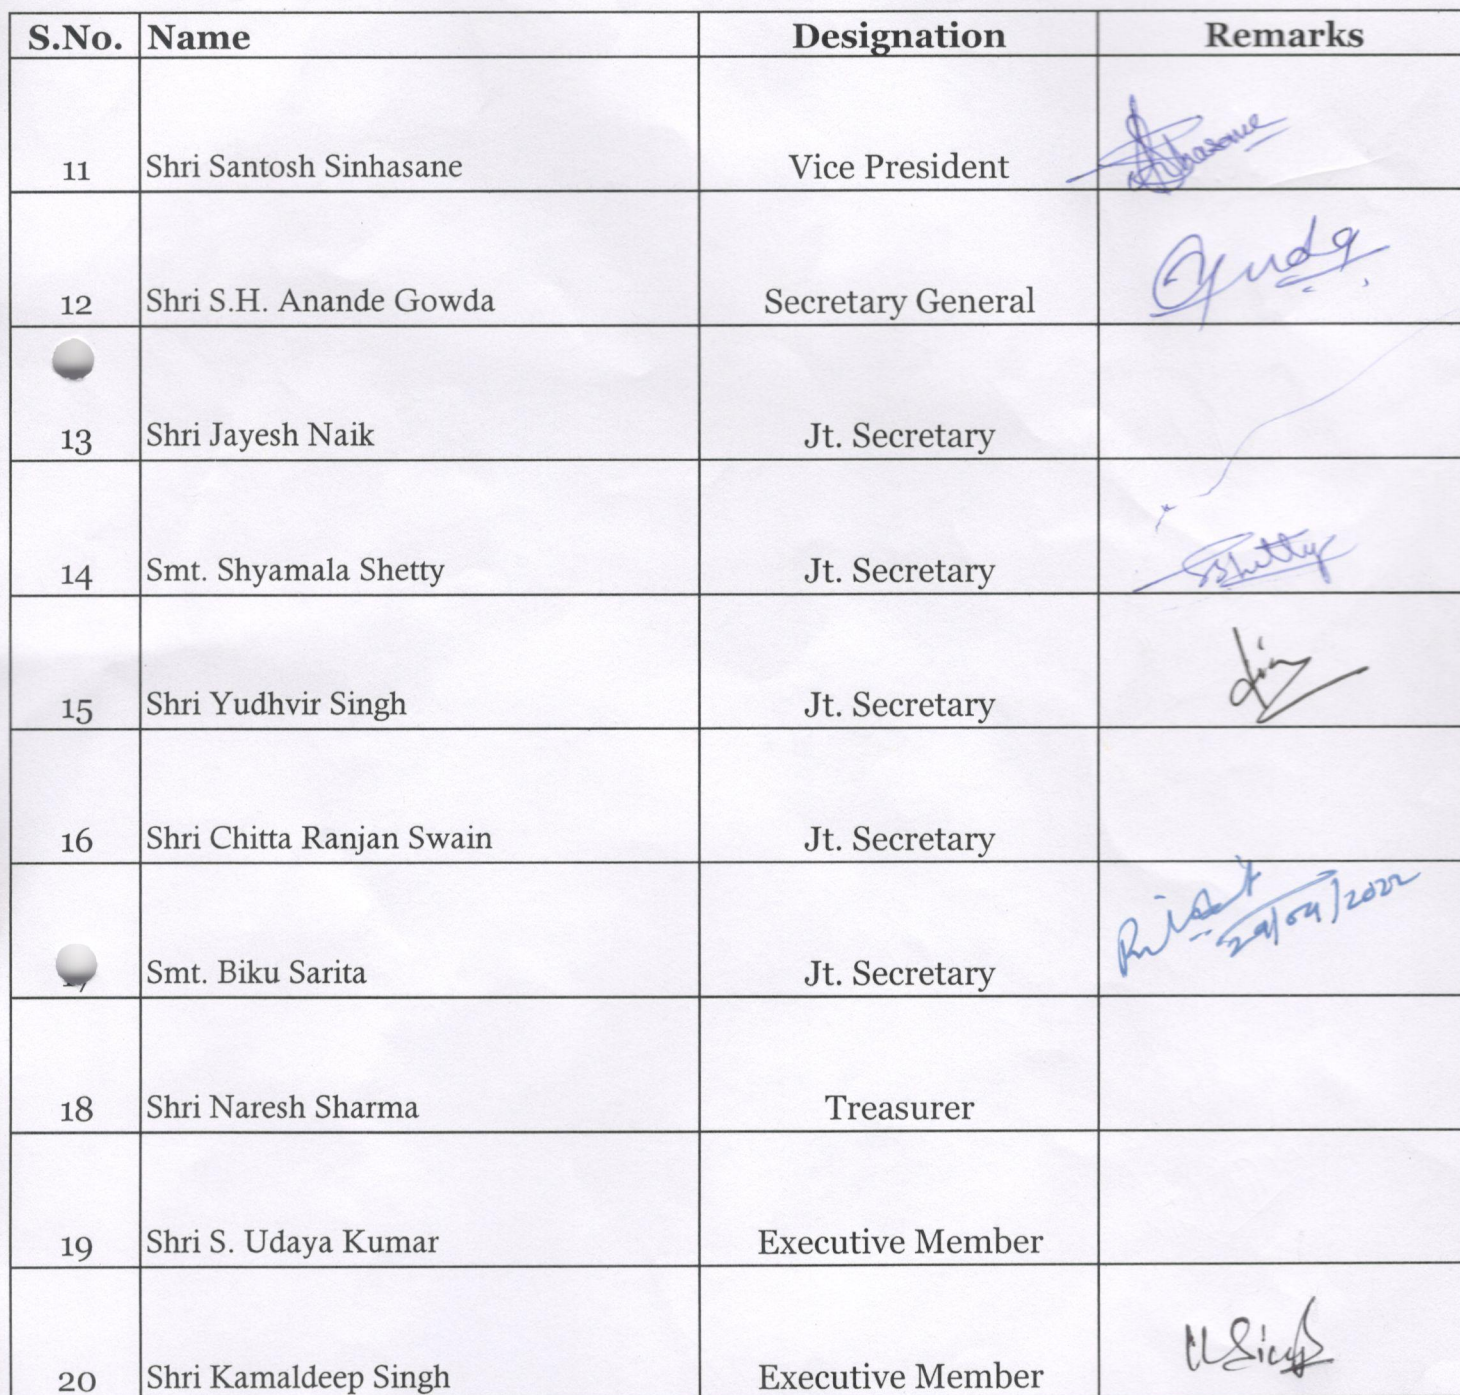 S.No. Name Designation Remarks
11 Shri Santosh Sinhasane Vice President
12 Shri S.H. Anande Gowda Secretary General
13 Shri Jayesh Naik Jt. Secretary
14 Smt. Shyamala Shetty Jt. Secretary SShetty
15 Shri Yudhvir Singh Jt. Secretary
16 Shri Chitta Ranjan Swain Jt. Secretary
29/04/2022
Smt. Biku Sarita Jt. Secretary
18 Shri Naresh Sharma Treasurer
19 Shri S. Udaya Kumar Executive Member
20 Shri Kamaldeep Singh Executive Member